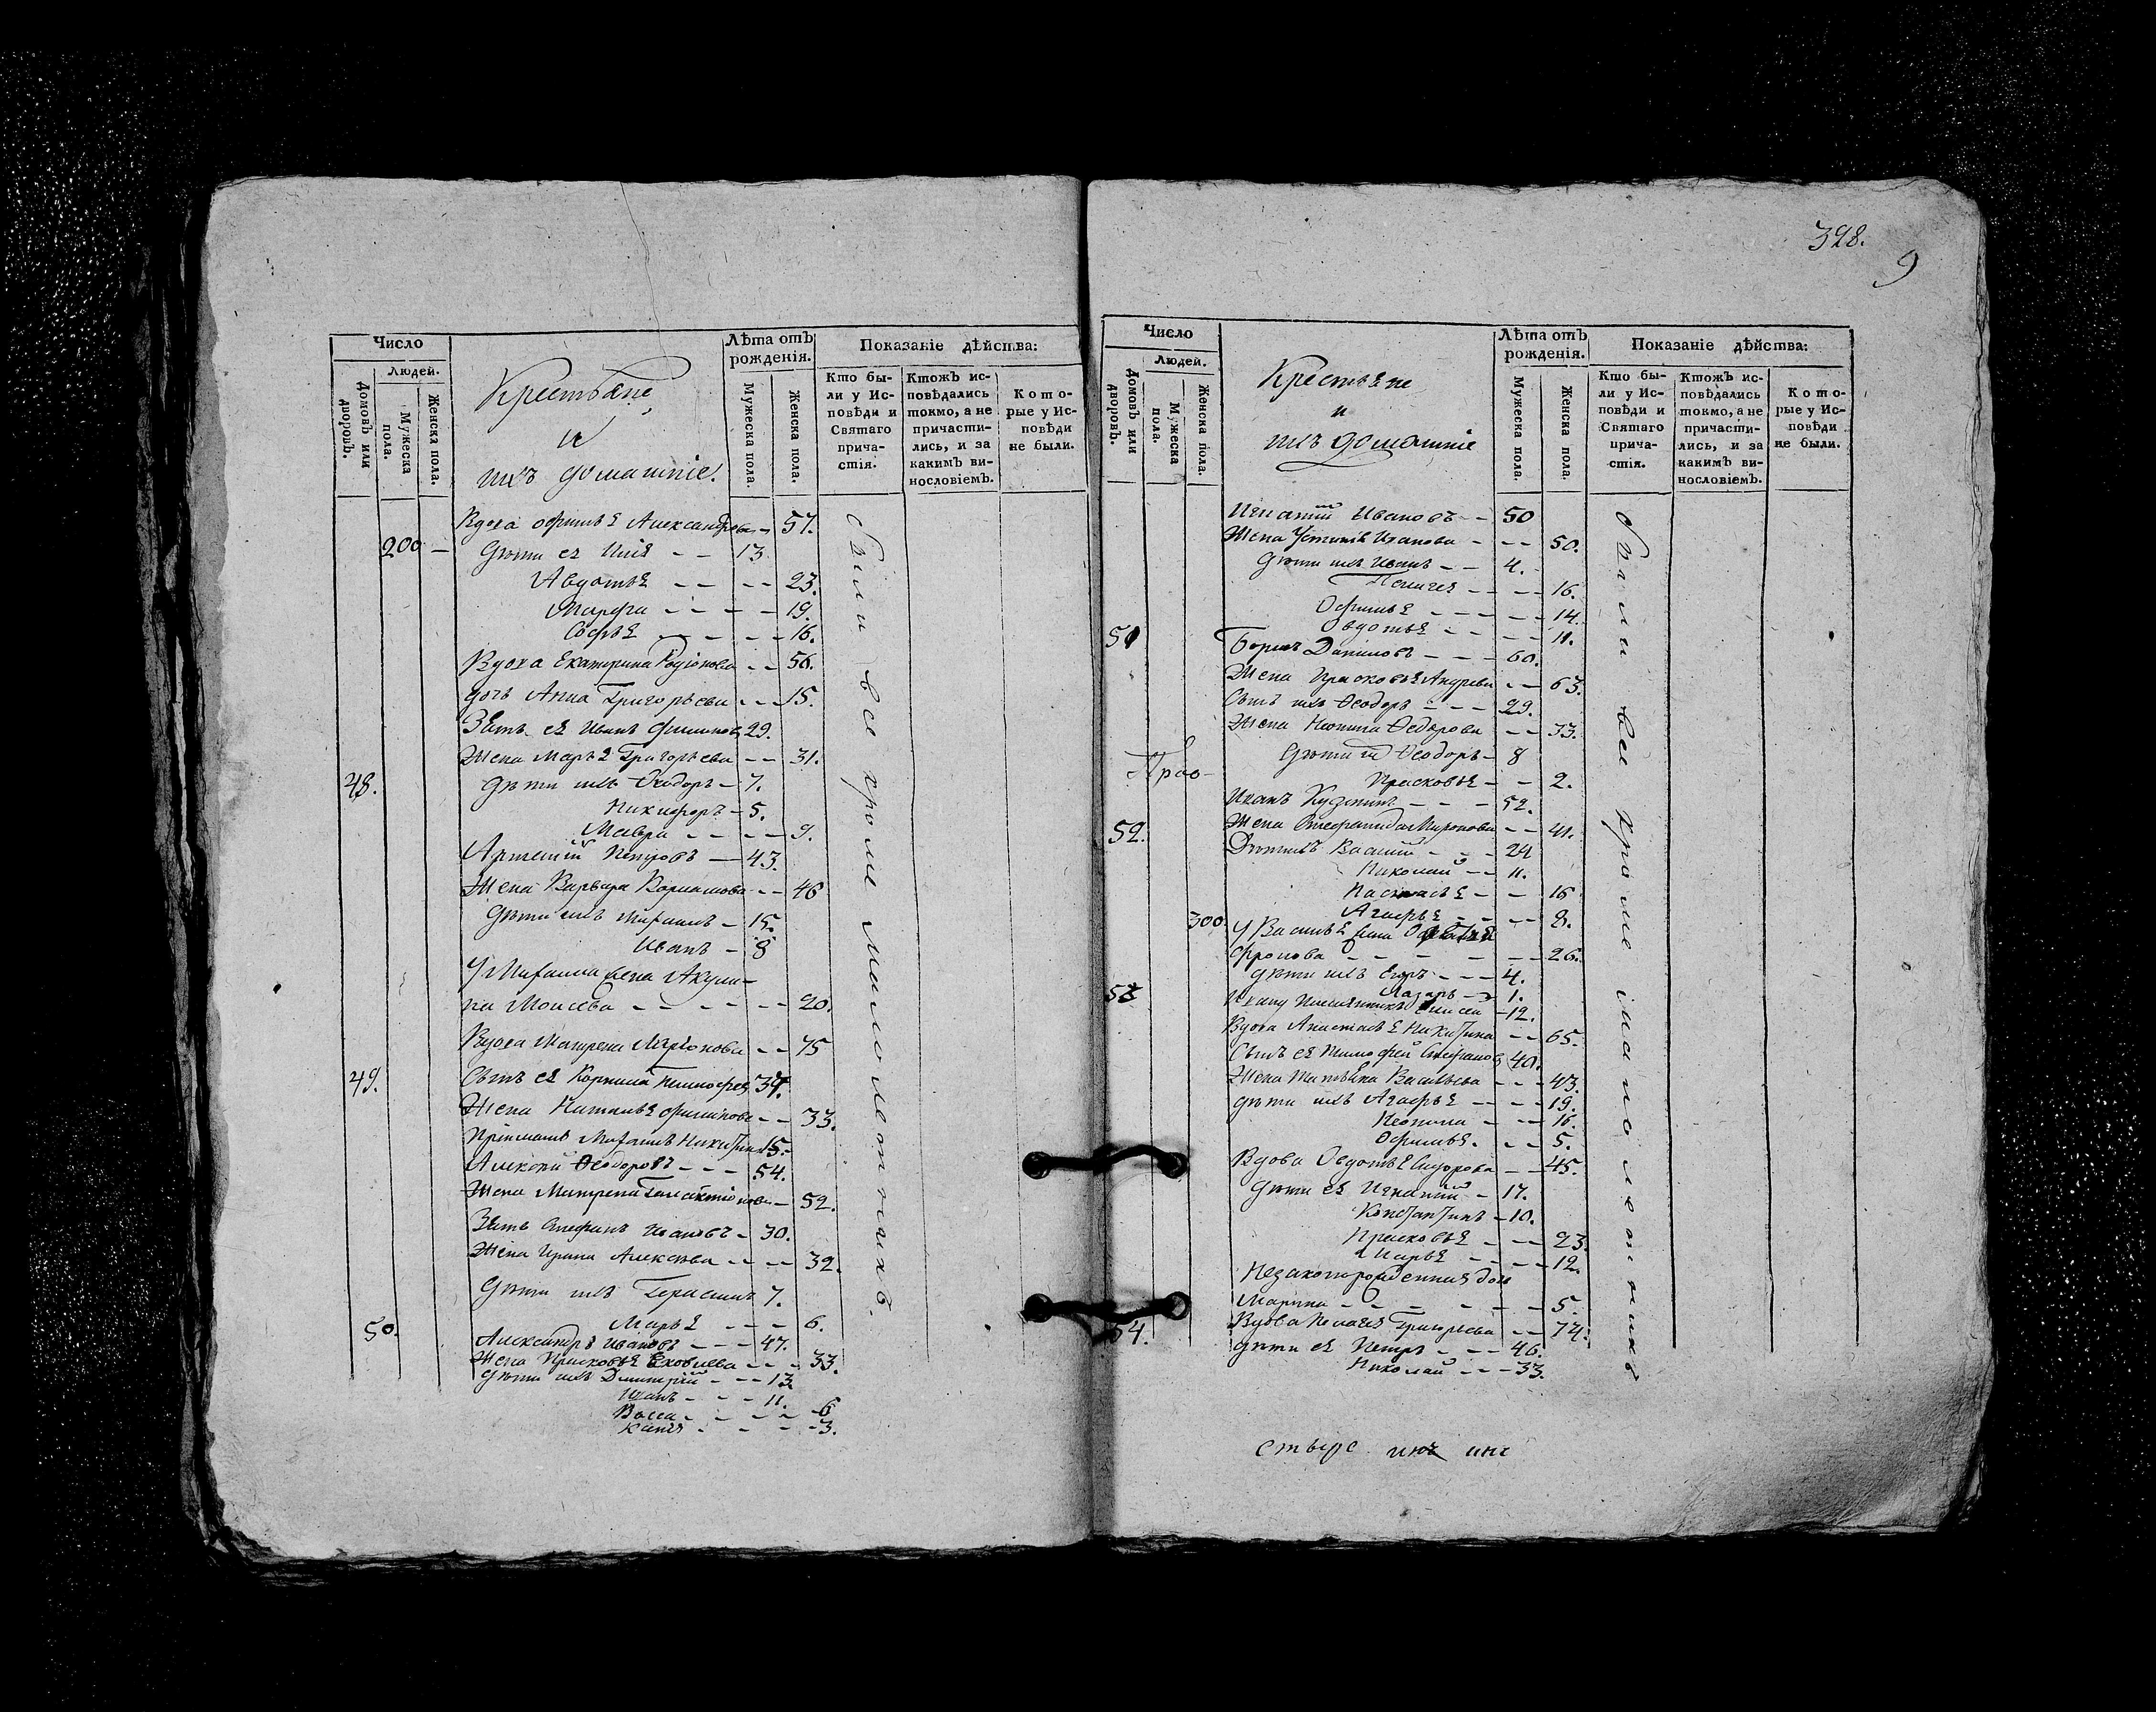 Число
Людей.
Домовъ или дворовъ.
Мужеска пола.
Женска пола.
Крестьяне
и
ихъ домашніе.
Лѣта отъ рожденія.
Мужеска пола.
Женска пола.
Показаніе дѣйства:
Кто бы-
ли у Ис-
повѣди и
Святаго
прича-
стія.
Ктожъ ис-
повѣдались
токмо, а не
причасти-
лись, и за
какимъ ви-
нословіемъ.
Кото-
рые у Ис-
повѣди
не были.
Вдова Офимья Александрова — 57.
200 — Дѣти ея Илія — — 13
Авдотья — — — — 23.
Марфа — — — — 19.
Софья — — — — 16.
Вдова Екатерина Родіонова — — 56.
дочь Анна Григорьева — — 15.
Зять ея Иванъ Филиповъ 29.
Жена Марья Григорьева — — 31.
48. дѣти ихъ Феодоръ — 7.
Никифоръ — 5.
Мавра — — — — 9.
Артемій Петровъ — 43.
Жена Варвара Варламова — — 46
Дѣти ихъ Михаилъ — 15.
Иванъ — 8
У Михаила жена Акули-
на Моисева — — — — — 20.
Вдова Матрена — — 75
49. Сынъ ея Корнилій Тимофеевъ 37.
Жена Наталья Филипова — — 33.
Пріимышъ Михаилъ Никитинъ 15.
Алексѣй Феодоровъ — — — 54.
Жена Матрена Галактіонова — 52.
Зять Стефанъ Ивановъ — 30.
Жена Ирина Алексѣева — — — 32.
Дѣти ихъ Герасимъ 7.
Марья — — — 6.
50. Александръ Ивановъ — — — 47.
Жена Прасковья Яковлева — — — 33.
Дѣти ихъ Димитрій — — — 13
Иванъ — — — 11.
Васса — — — — 6
— — — — 3.
Были все кроме малолетнихъ
328.
9
Число
Людей.
Домовъ или дворовъ.
Мужеска пола.
Женска пола.
Крестьяне
и
ихъ домашніе
Лѣта отъ рожденія.
Мужеска пола.
Женска пола.
Показаніе дѣйства:
Кто бы-
ли у Ис-
повѣди и
Святаго
прича-
стія.
Ктожъ ис-
повѣдались
токмо, а не
причасти-
лись, и за
какимъ ви-
нословіемъ.
Кото-
рые у Ис-
повѣди
не были.
Игнатій Ивановъ — — 50
Жена Устинія Иванова — — — 50.
Дѣти ихъ Иванъ — — 4.
Пелагея — — — — 16.
Офимья — — — — — 14.
Овдотья — — — — 11.
51 Борисъ Даниловъ — — — 60.
Жена Прасковья Андреева — — 63.
Сынъ ихъ Феодоръ — — — 29.
Жена Неонила Федорова — — 33.
Дѣти ихъ Феодоръ — 8
Прасковья — — 2.
Иванъ Кузминъ — — — 52.
52. Жена Стефанида Миронова — — 41.
Дѣти ихъ Василій — — — 24
Николай — — 11.
Настасья — — 16
300 Агафья — — — — 8.
У Василья жена
Фролова — — — — — 26.
дѣти ихъ Егоръ — — — 4.
53 Лазарь — — 1.
— 12.
Вдова Анастасья Никитина — — 65.
Сынъ ея Тимофей Стефановъ 40.
Жена Татьяна Васильева — — — 43.
дѣти ихъ Агафья — — — — 19.
Неонила — — — 16.
Офимья. — — 5.
Вдова Овдотья Сидорова — — 45.
Дѣти ея Игнатій — 17.
Константинъ — 10.
Прасковья — — — 23.
Марья — — — — 12.
Незаконорожденная дочь
Марина — — — — — — 5.
54. Вдова Пелагея Григорьева — — 74.
дѣти ея Петръ — — — 46.
Николай — — — 33.
Были все кроме малолетнихъ